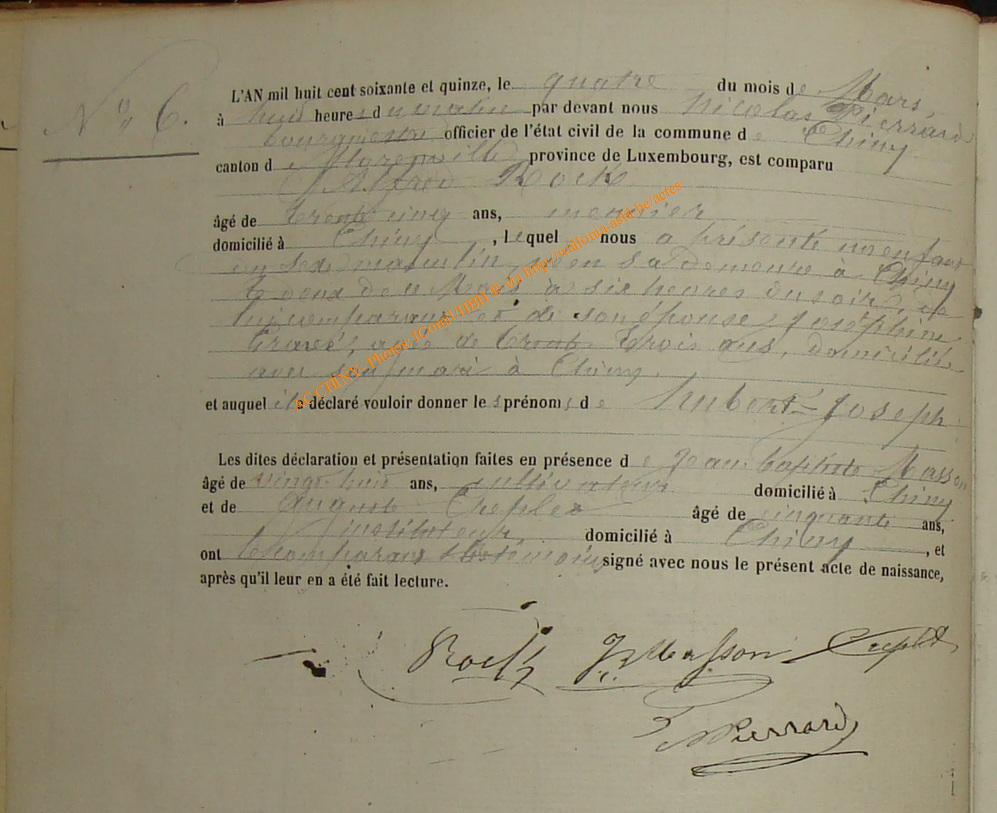 N° 6.
L'AN mil huit cent soixante et quinze, le quatre du mois de Mars
à huit heures du matin par devant nous Nicolas Pierrard
bourgmestre officier de l'état civil de la commune de Chiny
canton de Florenville province de Luxembourg, est comparu
Alfred Rock
âgé de trente cinq ans, meunier
domicilié à Chiny, lequel nous a présenté un enfant
du sexe masculin, né en sa demeure à Chiny
le deux de Mars à six heures du soir, de
lui comparant et de son épouse, Joséphine
âgée de trente trois ans, domiciliée
avec son mari à Chiny.
et auquel il a déclaré vouloir donner les prénoms de Hubert-Joseph
Les dites déclaration et présentation faites en présence de Jean-baptiste Masson
âgé de vingt-huit ans, cultivateur domicilié à Chiny
et de auguste âgé de cinquante ans,
instituteur domicilié à Chiny, et
ont le comparant témoins signé avec nous le présent acte de naissance,
après qu'il leur en a été fait lecture.
Rock J. Masson
Pierrard